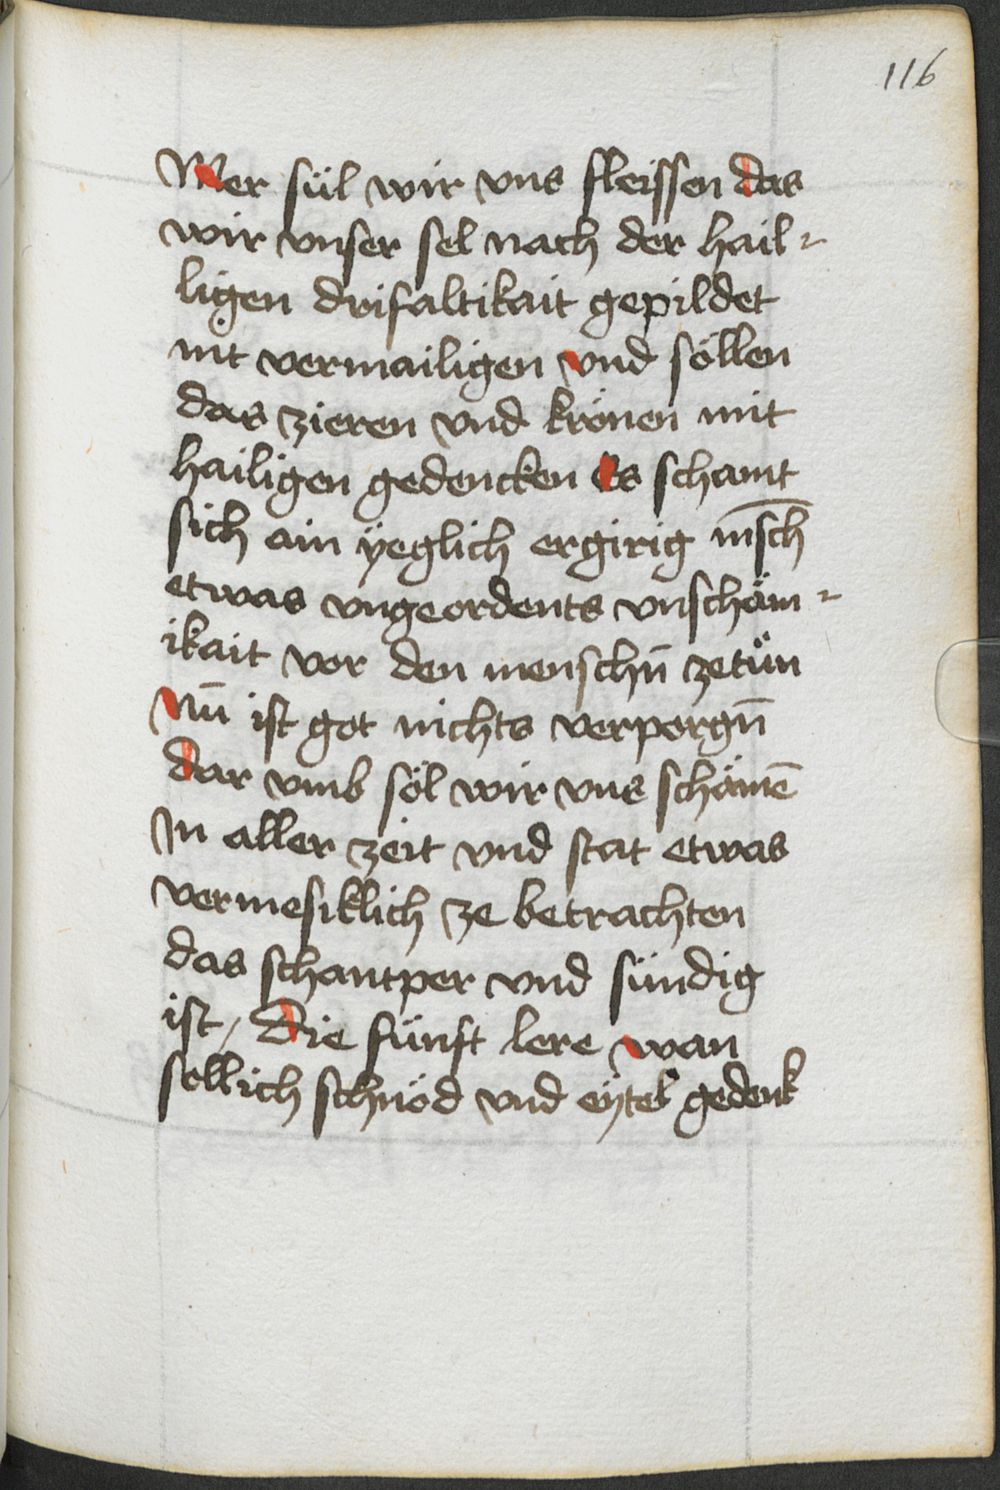 116
Mer sül wir vns fleissen das
wir vnser sel nach der hail-
ligen drifaltikait gepildet
nit vermailigen vnd söllen
das zieren vnd krönen mit
hailigen gedencken Es schamt
sich ain ÿeglich ergirig mc̄sch
etwas vngeordents vnschäm-
ikait vor den menschn̄ zetün
Nu̅ ist got nichts verporgn̄
dar vmb söl wir vns schämē
In aller zeit vnd stat etwas
vermesiklich ze betrachten
das schantper vnd sündig
ist / Die fünft lere wan
söllich schnöd vnd eÿtel gedenk